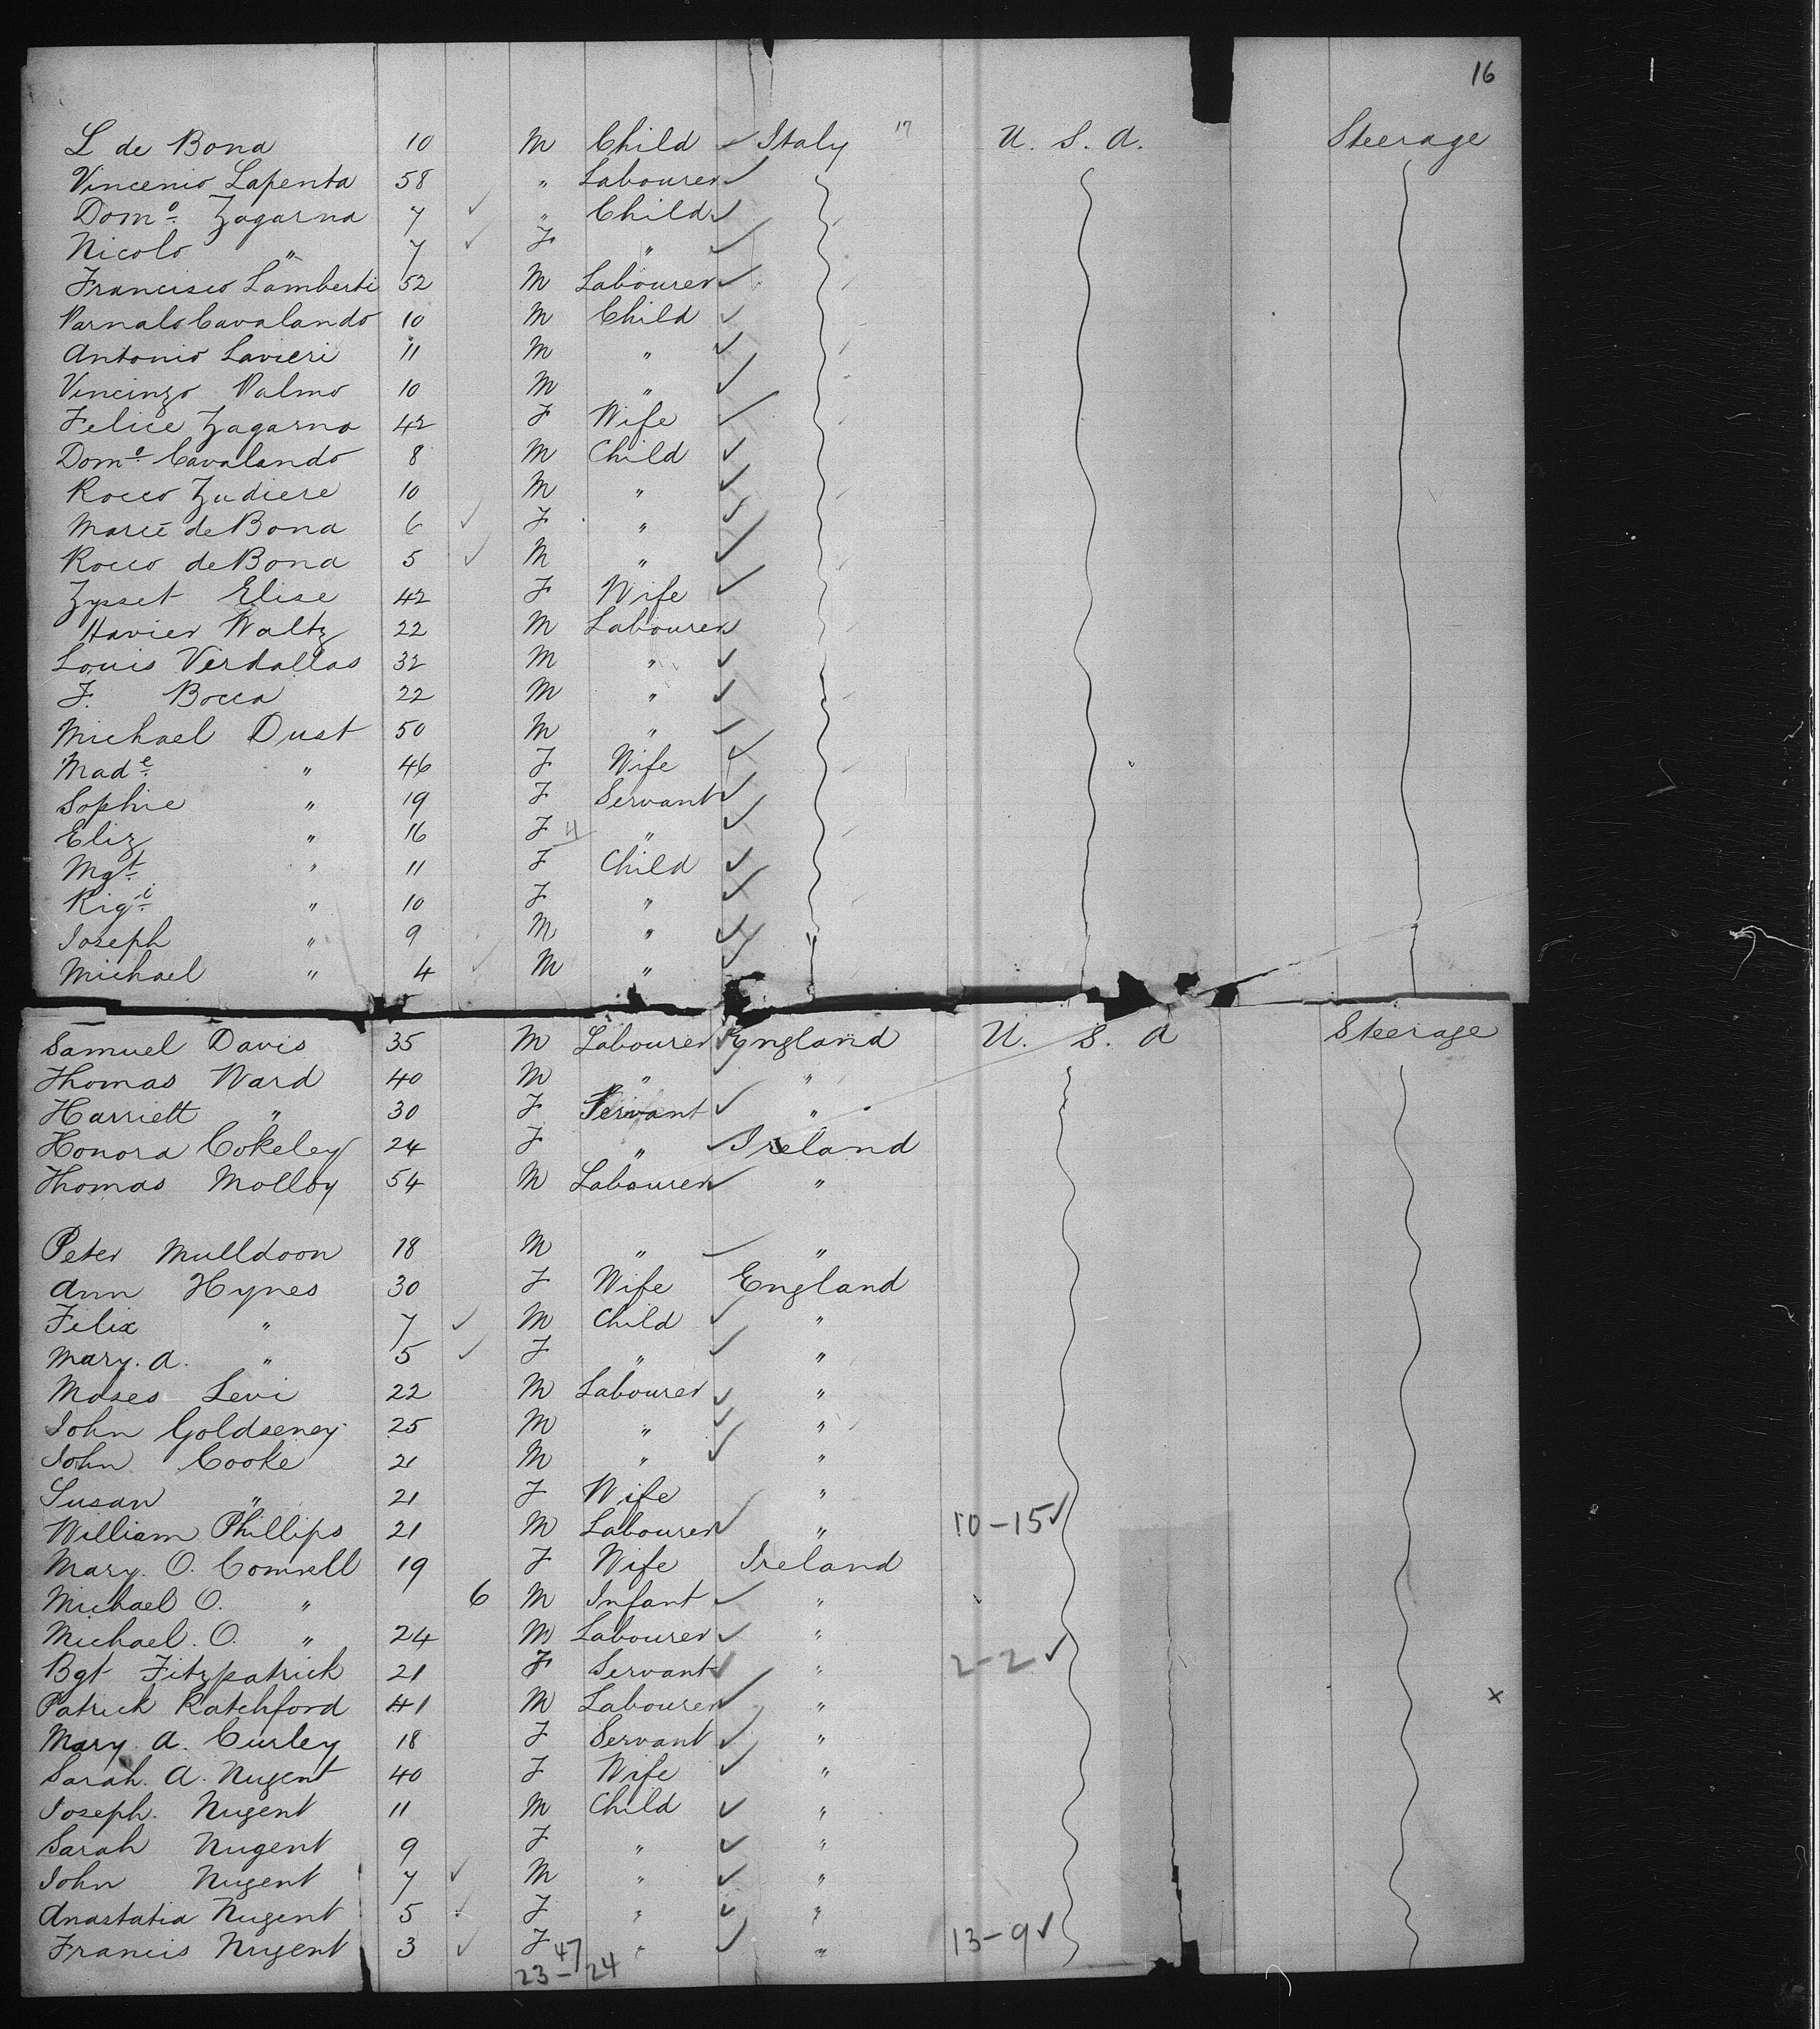 16
L de Bona 10 M Child Italy 17 U. S. A. Steerage
Vincenio Lapenta 58 " Labourer
Domo. Zagarna 7 " Child
Nicolo " 7 F "
Francisco Lamberti 52 M Labourer
Parnalo Cavalando 10 M Child
Antonio Lavieri 11 M "
Vincinzo Palmo 10 M "
Felice Zagarno 42 F Wife
Domo. Cavalando 8 M Child
Rocco Zudiere 10 M "
Marie de Bona 6 F "
Rocco de Bona 5 M "
Zysset Elise 42 F Wife
Havier Waltz 22 M Labourer
Louis Verdallas 32 M "
F. Bocca 22 M "
Michael Dust 50 M "
Made. " 46 F Wife
Sophie " 19 F Servant
Eliz " 16 F 4 "
Mgt. " 11 F Child
Rigi. " 10 F "
Joseph " 9 M "
Michael " 4 M "
Samuel Davis 35 M Labourer England U. S. A Steerage
Thomas Ward 40 M " "
Harriett " 30 F Servant "
Honora Cokeley 24 F " Ireland
Thomas Molloy 54 M Labourer "
Peter Mulldoon 18 M " "
Ann Hynes 30 F Wife England
Felix " 7 M Child "
Mary. A. " 5 F " "
Moses Levi 22 M Labourer "
John Goldseney 25 M " "
John Cooke 21 M " "
Susan " 21 F Wife "
William Phillips 21 M Labourer " 10-15
Mary. O. Connell 19 F Wife Ireland
Michael O. " 6 M Infant "
Michael. O. " 24 M Labourer "
Bgt Fitzpatrick 21 F Servant " 2-2
Patrick Ratchford 41 M Labourer " x
Mary. A. Curley 18 F Servant "
Sarah. A. Nugent 40 F Wife "
Joseph. Nugent 11 M Child "
Sarah Nugent 9 F " "
John Nugent 7 M " "
Anastatia Nugent 5 F " "
Francis Nugent 3 F " " 13-9
47
23-24